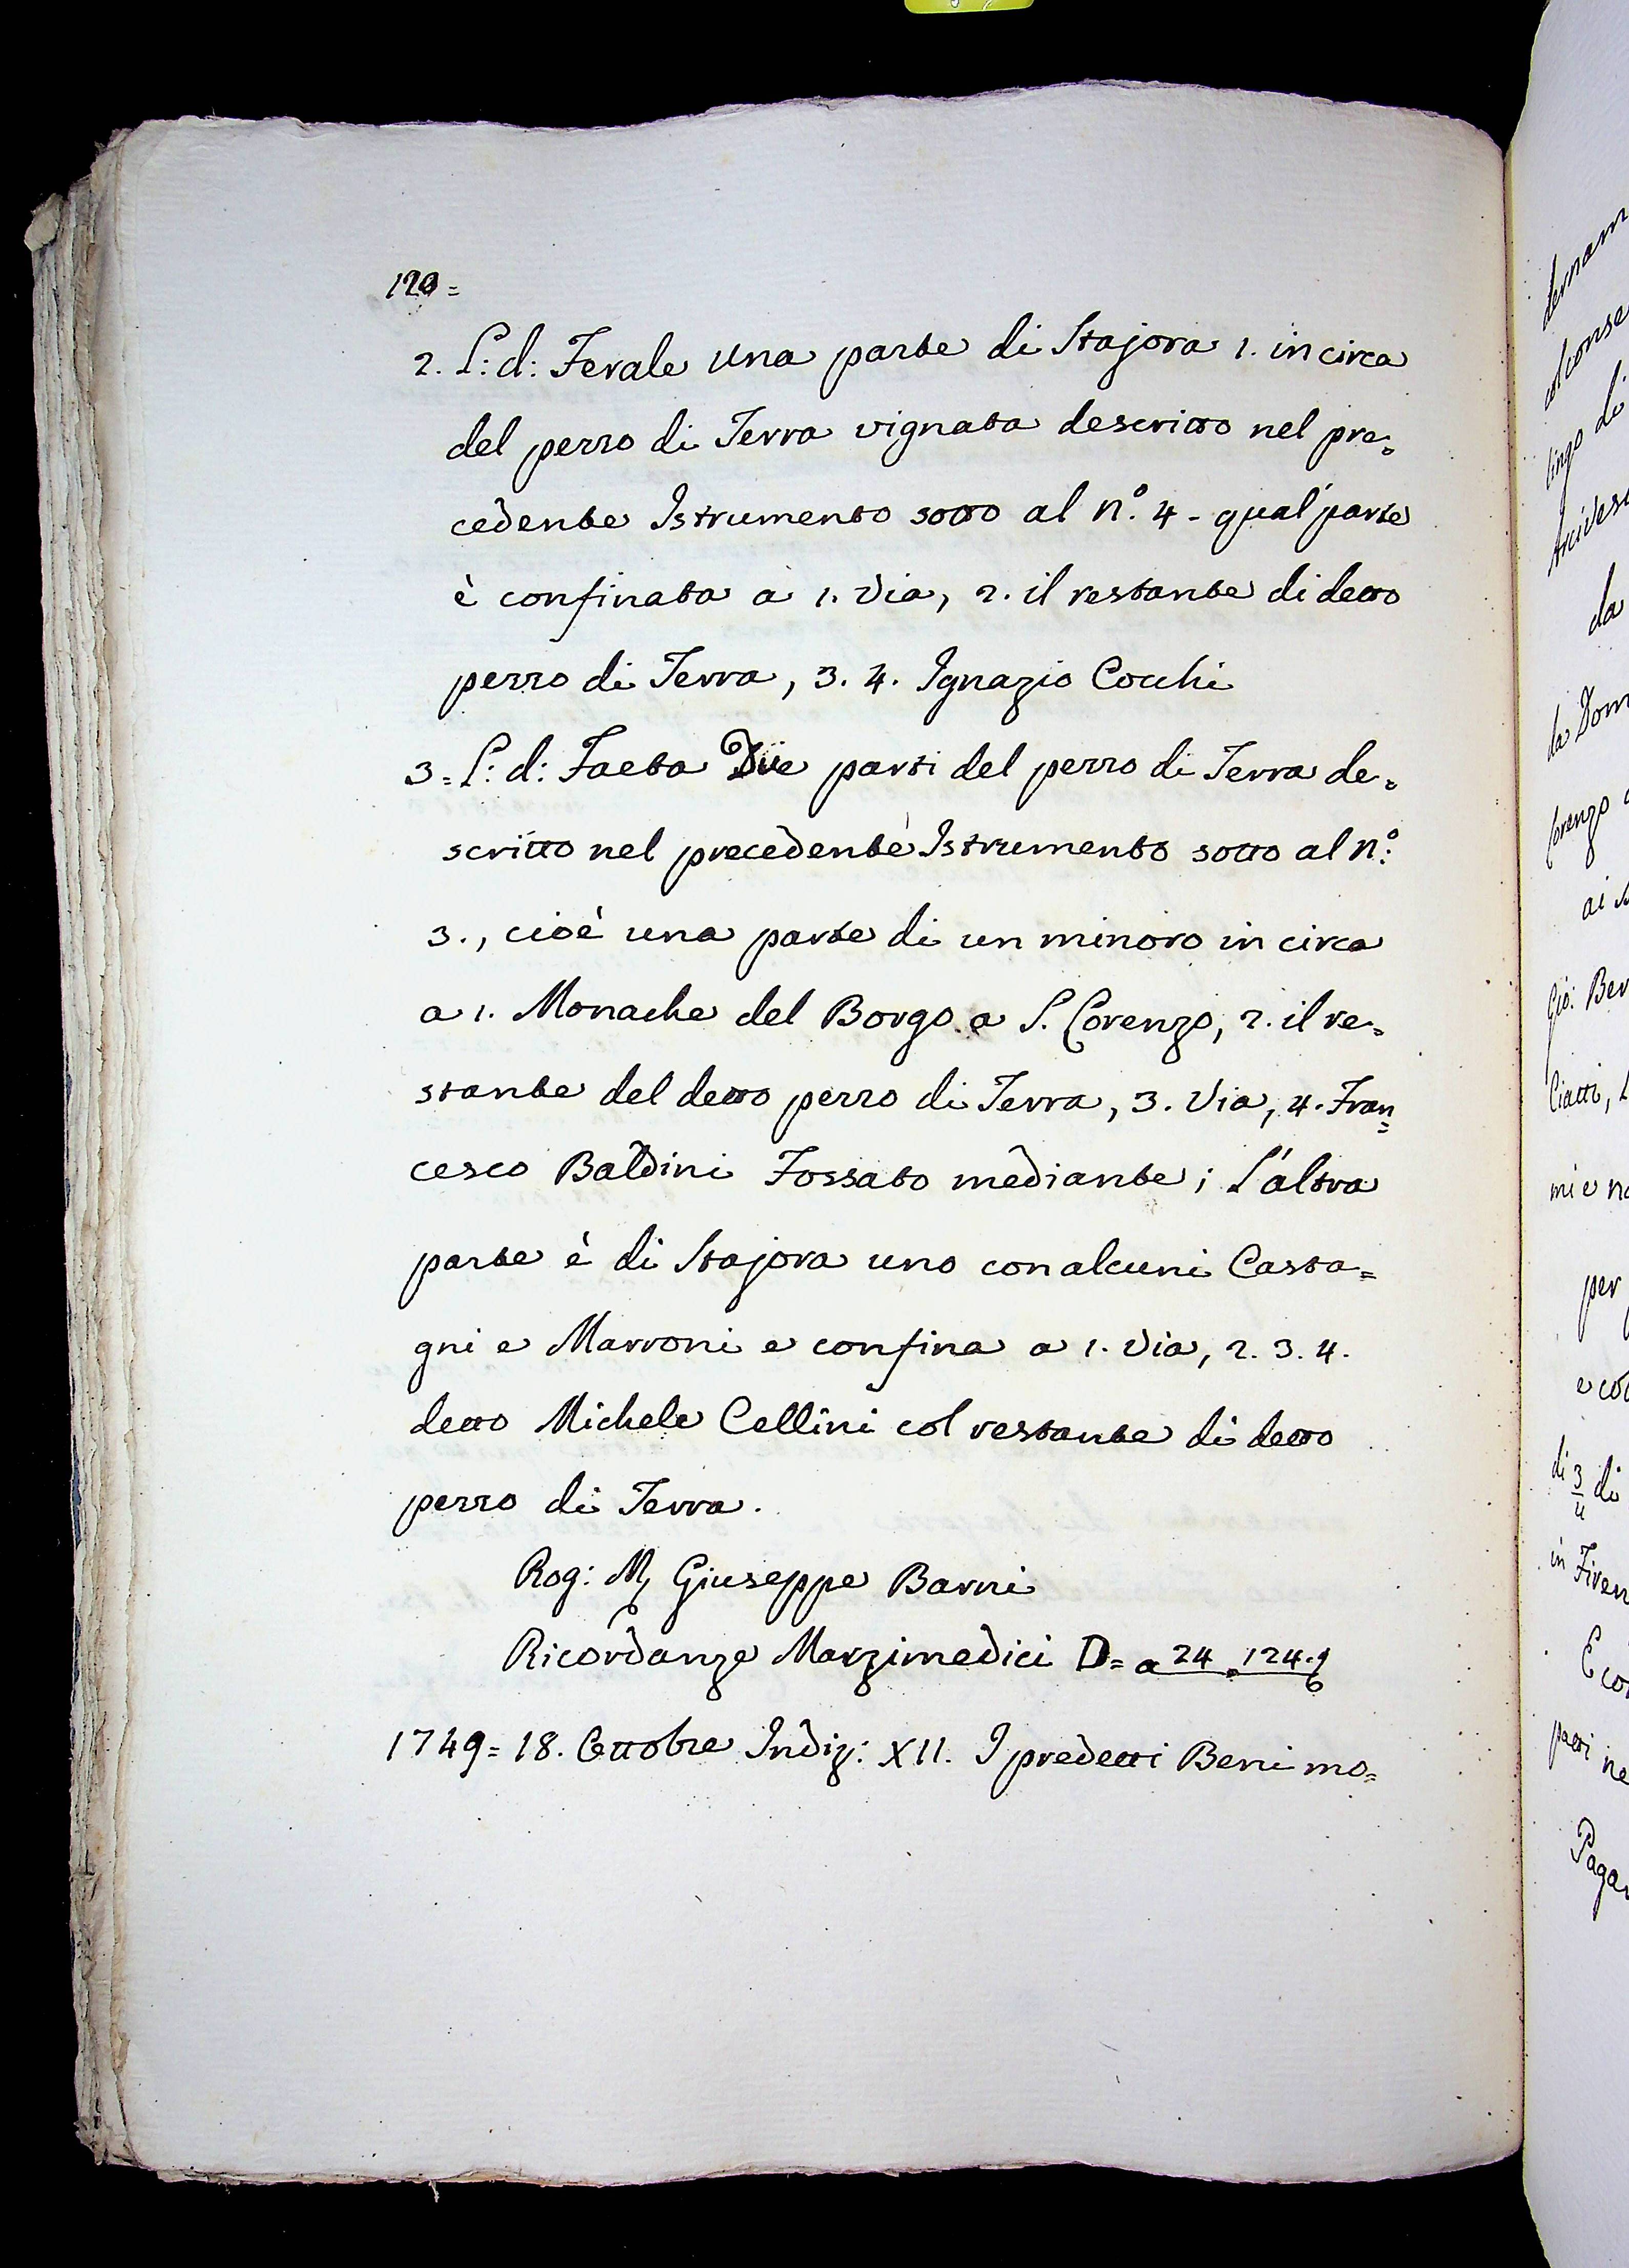 120=
2. L: d: Ferale una parte di Stajora 1. in circa
del pezzo di Terra vignata descritto nel pre=
cedente Istrumento sotto al n.º 4 - qual parte
è confinata a 1. Via, 2. il restante di detto
pezzo di Terra, 3. 4. Ignazio Cocchi
3= L: d: Faeta Due parti del pezzo di Terra de=
scritto nel precedente Istrumento sotto al n.º
3., cioè una parte di un minoro in circa
a 1. Monache del Borgo a S. Lorenzo, 2. il re=
stante del detto pezzo di Terra, 3. Via, 4. Fran=
cesco Baldini Fossato mediante; L'altra
parte è di Stajora uno con alcuni Casta=
gni e Marroni e confina a 1. Via, 2. 3. 4.
detto Michele Cellini col restante di detto
pezzo di Terra.
Rog: M Giuseppe Barni
Ricordanze Marzimedici D= a 24
1749= 18. Ottobre Indiz: XII. I predetti Beni mo=